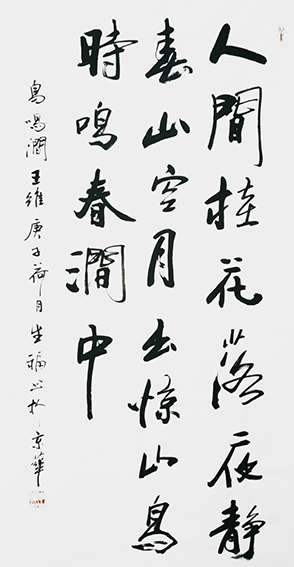 人閒桂花落夜静
春山空月出惊山鳥
時鳴春澗中
鳥鳴澗王維庚子荷月生福书於京華